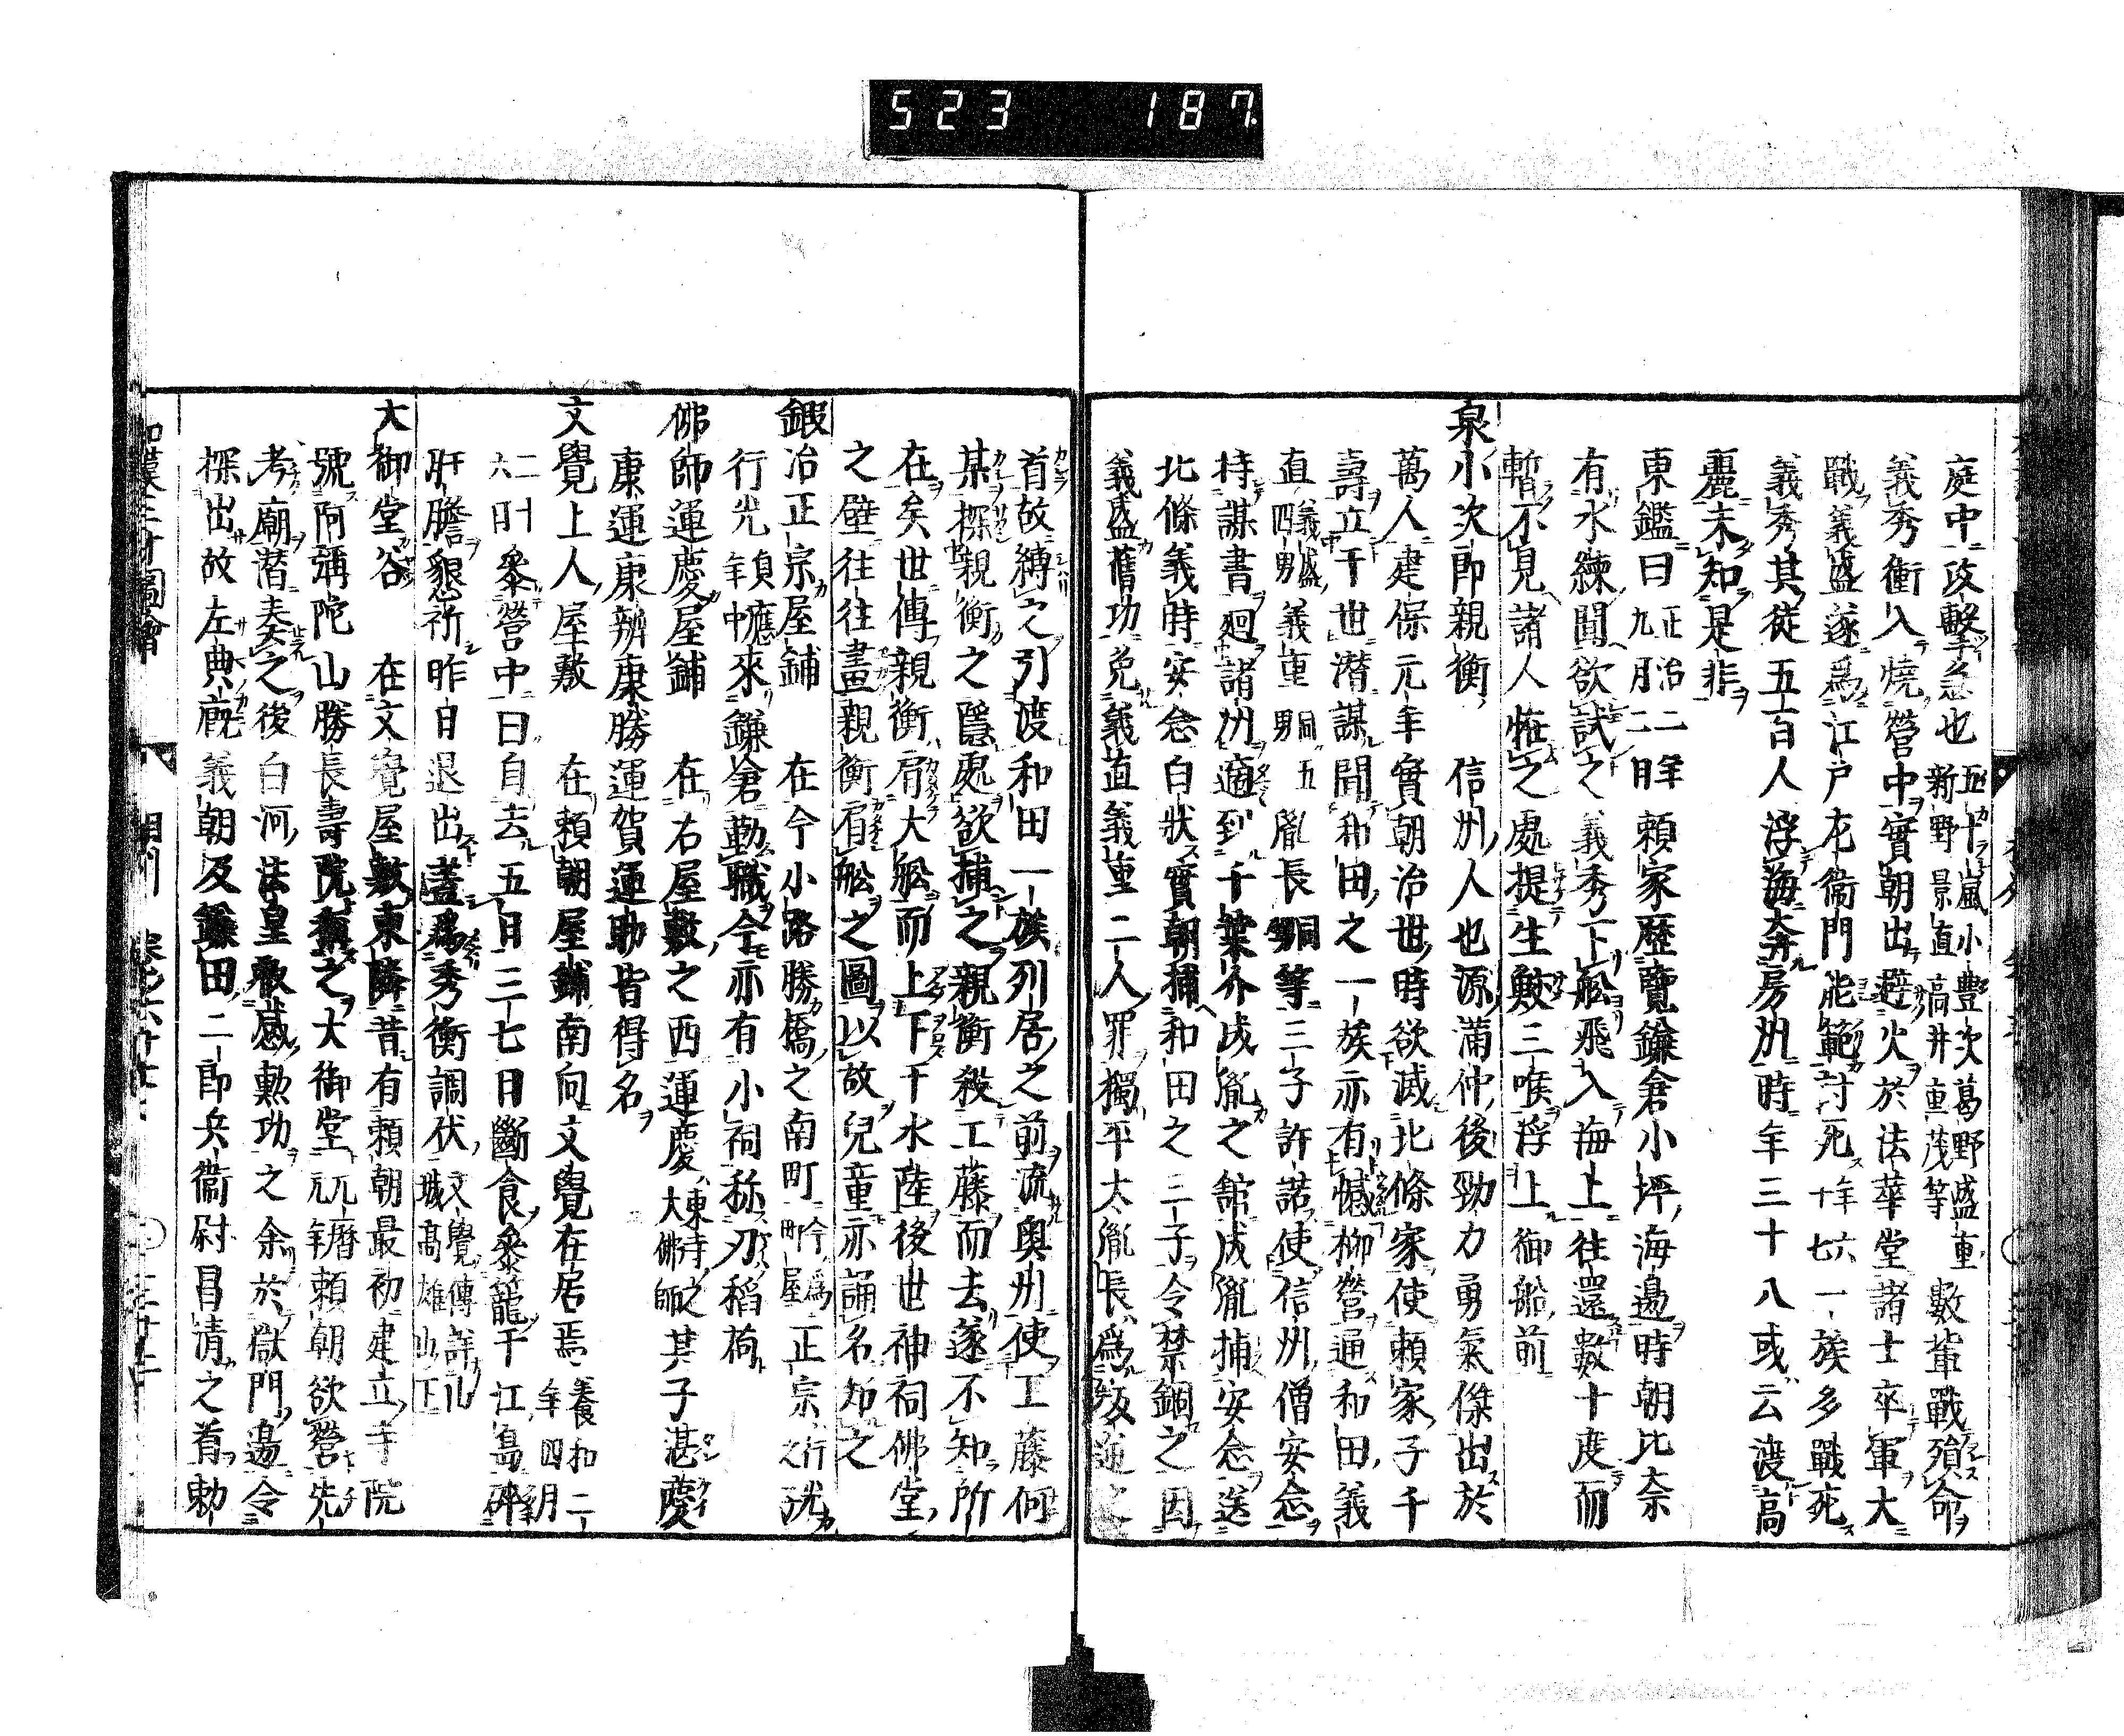 523 187
庭中攻擊急也五十嵐小豊次葛野盛重新野景直高井重茂等數輩戰殞命
義秀衝入燒營中實朝出避火於法華堂諸士卒軍大
戰義盛遂爲江戸左衞門能範討死年六十七一族多戰死
義秀其徒五百人浮海奔房州時年三十八或云渡高
麗未知是非
東鑑曰正治二年九月二日頼家歷覽鎌倉小坪海邉時朝比奈
有水練聞欲試之義秀下舩飛入海上往還數十度而
暫不見諸人恠之處提生鮫三喉浮上御船前
泉小次郎親衡 信州人也源滿仲後勁力勇氣傑出於
萬人建保元年實朝治世時欲滅北條家使頼家子千
壽立于世潜謀聞和田之一族亦有憾柳營通和田義
直義盛四男義重同五男胤長甥等三子許諾使信州僧安念
持謀書廻諸州適到千葉介成胤之舘成胤捕安念送
北條義時安念白狀實朝捕和田之二子令禁錮之因
義盛舊功免義直義重二人罪獨平太胤長爲
首故縛之引渡和田一族列居之前流奥州使工藤何
某探親衡之隱處欲捕之親衡殺工藤而去遂不知所
在矣世傳親衡肩大舩而上下于水陸後世神祠佛堂
之壁往往畫親衡肩舩之圖以故兒童亦誦名知之
鍜冶正宗屋鋪 在今小路勝橋之南町今爲町屋正宗行光之
行光貞應年中來鎌倉勤職今亦有小祠称刃稻荷
佛師運慶屋鋪 在右屋敷之西運慶東寺之大佛師其子湛慶
康運康辨康勝運賀運助皆得名
文覺上人屋敷 在頼朝屋鋪南向文覺在居焉養和二年四月
二十六日參營中曰自去五日三七日斷食參籠于江島碎
肝膽懇祈昨日退出蓋爲秀衡調伏文覺傳詳山城高雄山下
大御堂谷 在文覺屋敷東隣昔有頼朝最初建立寺院
號阿彌陀山勝長壽院稱之大御堂元曆元年頼朝欲營先
考廟潜奏之後白河法皇叡感勲功之余於獄門邉令
探出故左典廐義朝及鎌田二郎兵衞尉昌清之首勅